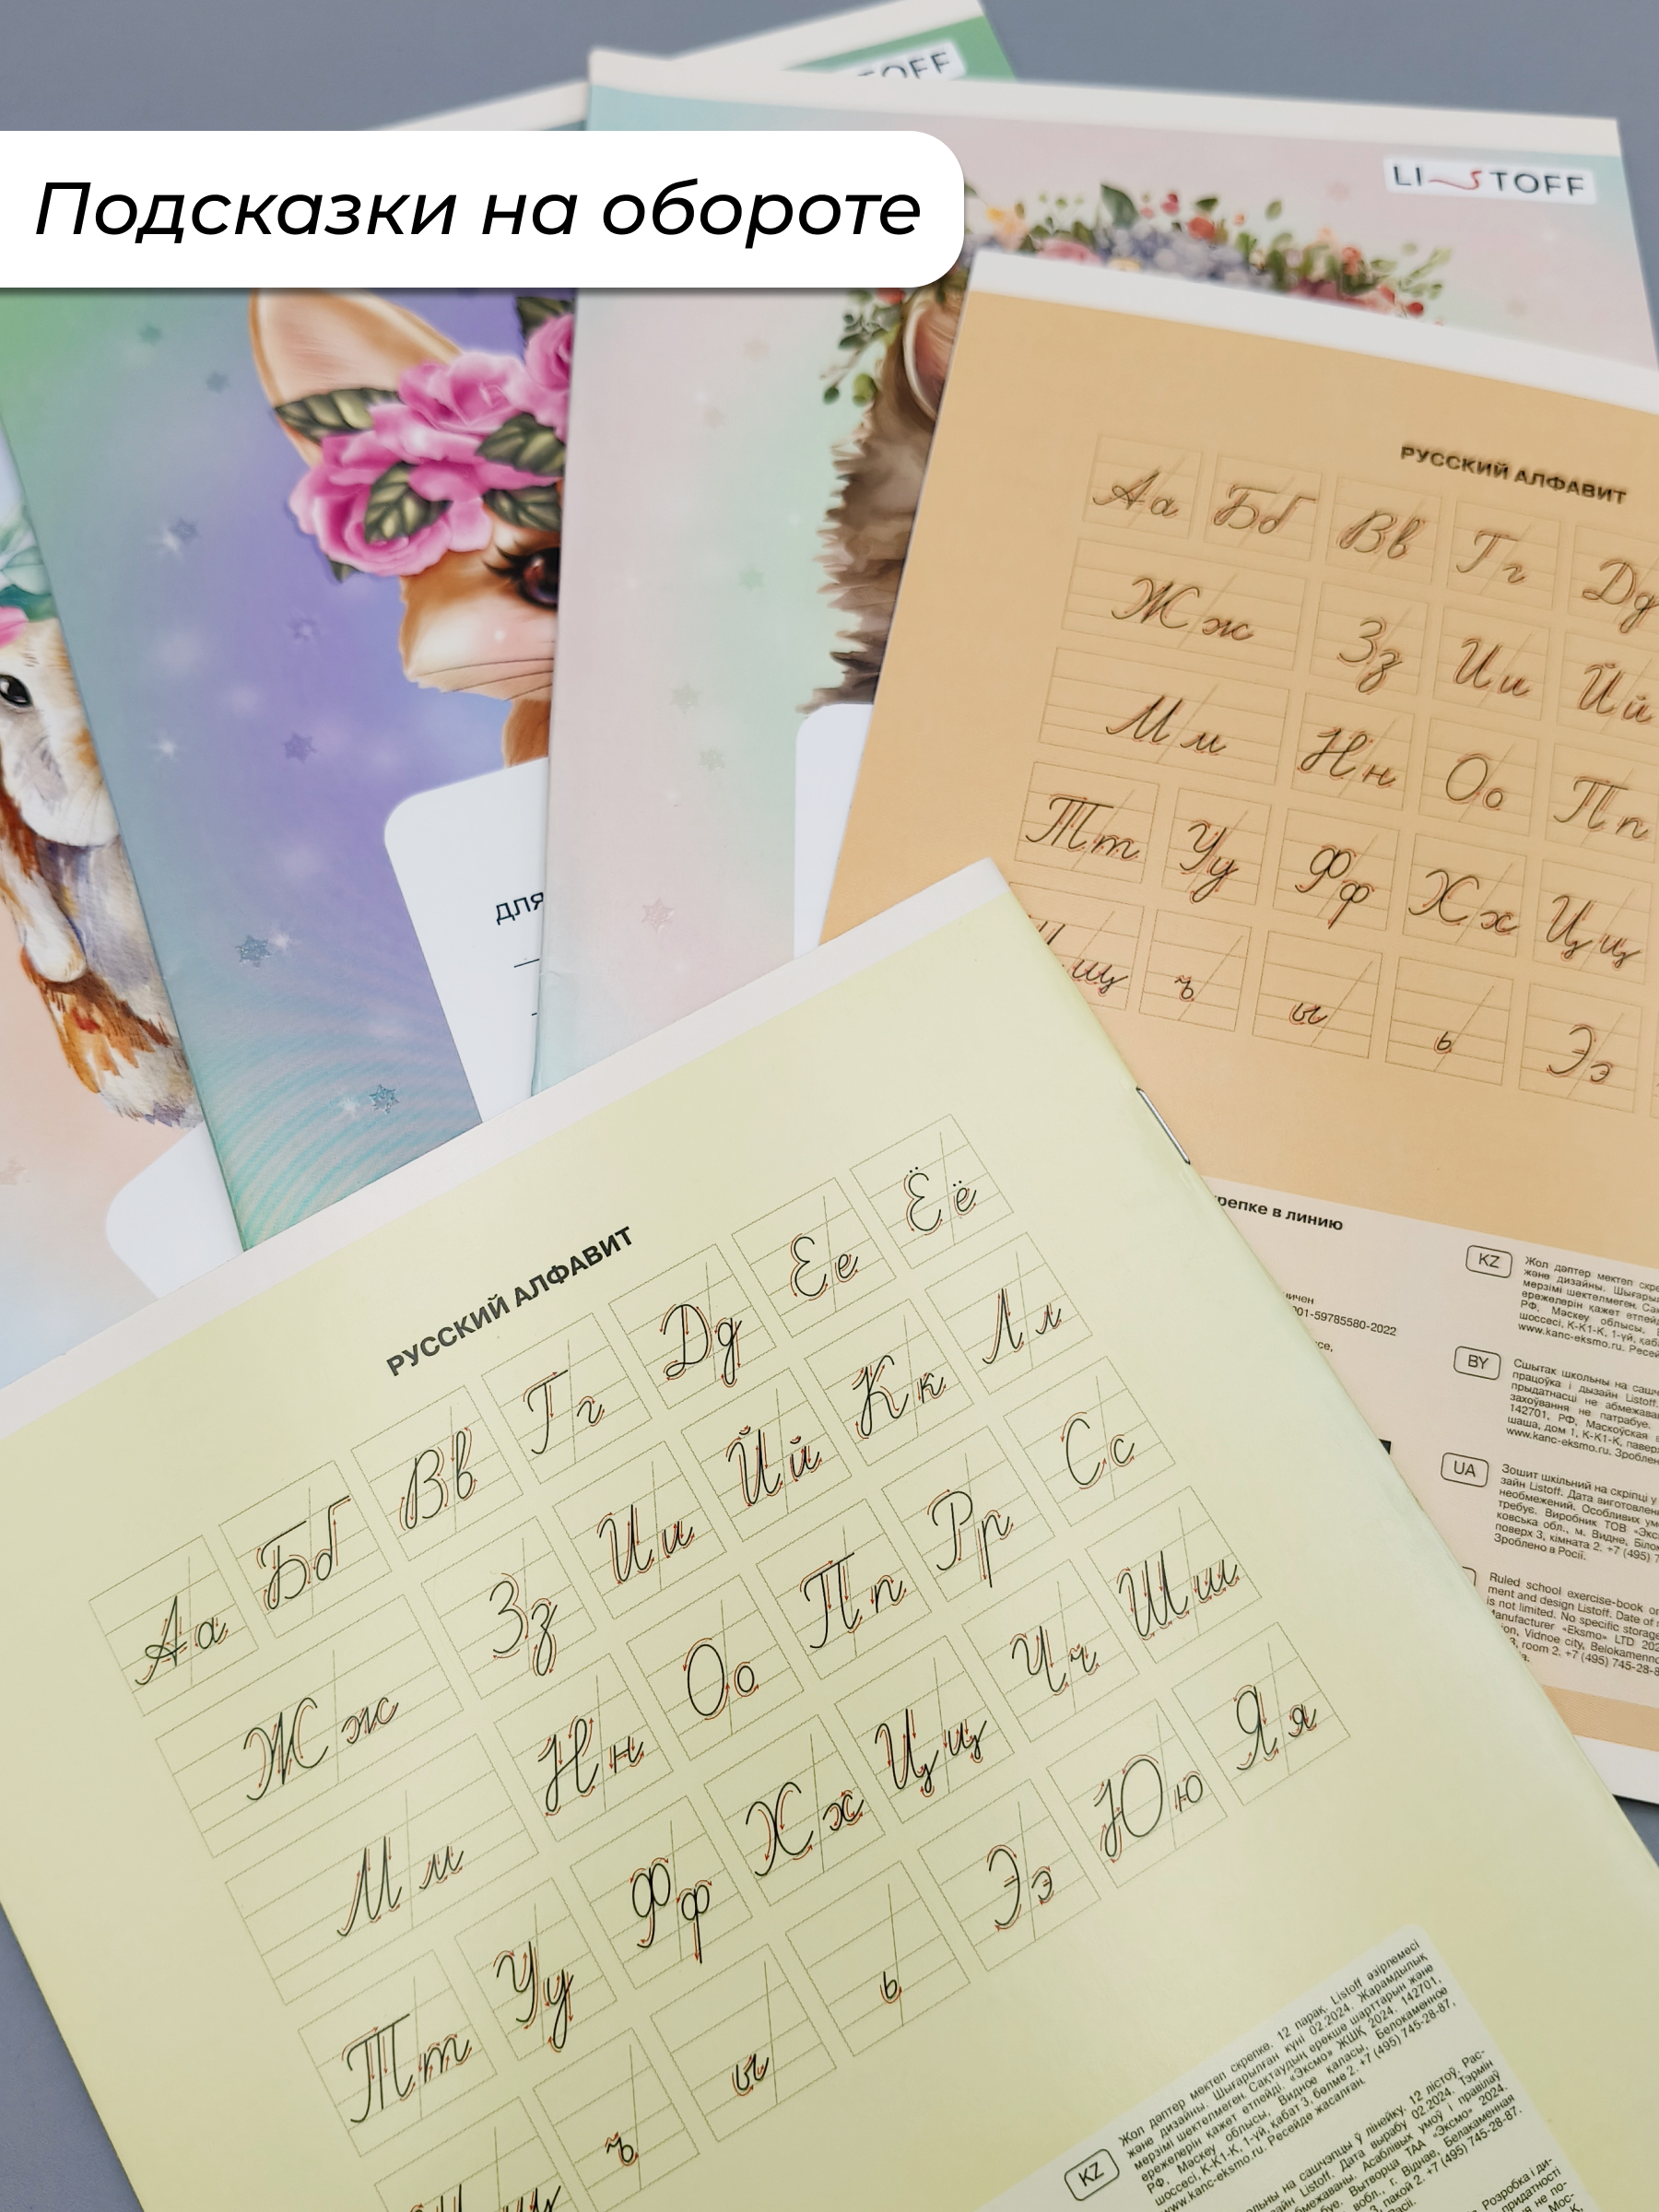 TOFF
Подсказки на обороте
LISTOFF
ДЛЯ
РУССКИЙ АЛФАВИТ
Аа Бб Вв Гг Дд
Жж Зз Ии Йй
Мм Нн Оо Пп
Тт Уу Фф Хх Цц
щ ъ ы ь Ээ
репке в линию
001-59785580-2022
KZ
Жол дәптер мектеп
және дизайны.
мерзімі шектелмеген
ережелерін қажет
РФ, Мәскеу облысы,
шоссесі, К-К1-К, 1-үй,
www.kanc-eksmo.ru.
BY
Сшытак школьны на
працоўка і дызайн Listoff.
прыдатнасці не
захоўвання не патрабуе.
142701, РФ, Маскоўская
шаша, дом 1, К-К1-К,
www.kanc-eksmo.ru.
UA
Зошит шкільний на скріпці у
зайн Listoff. Дата
необмежений. Особливих
требує. Виробник ТОВ
ковська обл., м. Видне,
поверх 3, кімната 2. +7 (495)
Зроблено в Росії.
Ruled school exercise-book
ment and design Listoff. Date of
is not limited. No specific
Manufacturer «Eksmo» LTD
Vidnoe city,
room 2. +7 (495) 745-28-8
РУССКИЙ АЛФАВИТ
Аа Бб Вв Гг Дд Ее Ёё
Жж Зз Ии Йй Кк Лл
Мм Нн Оо Пп Рр Сс
Тт Уу Фф Хх Цц Чч Шш
щ ъ ы ь Ээ Юю Яя
KZ
Жол дәптер мектеп скрепке. 12 парақ. Listoff әзірлемесі
және дизайны. Шығарылған күні 02.2024. Жарамдылық
мерзімі шектелмеген. Сақтаудың ерекше шарттарын және
ережелерін қажет етпейді. «Эксмо» ЖШҚ 2024. 142701,
РФ, Мәскеу облысы, Видное қаласы, Белокаменное
шоссесі, К-К1-К, 1-үй, қабат 3, бөлме 2. +7 (495) 745-28-87,
www.kanc-eksmo.ru. Ресейде жасалған.
на сашчэпцы ў лінейку. 12 лістоў. Рас-
Listoff. Дата вырабу 02.2024. Тэрмін
Асаблівых умоў і правілаў
Вытворца ТАА «Эксмо» 2024.
вобл., г. Віднае, Белакаменная
пакой 2. +7 (495) 745-28-87.
Розробка і ди-
придатності